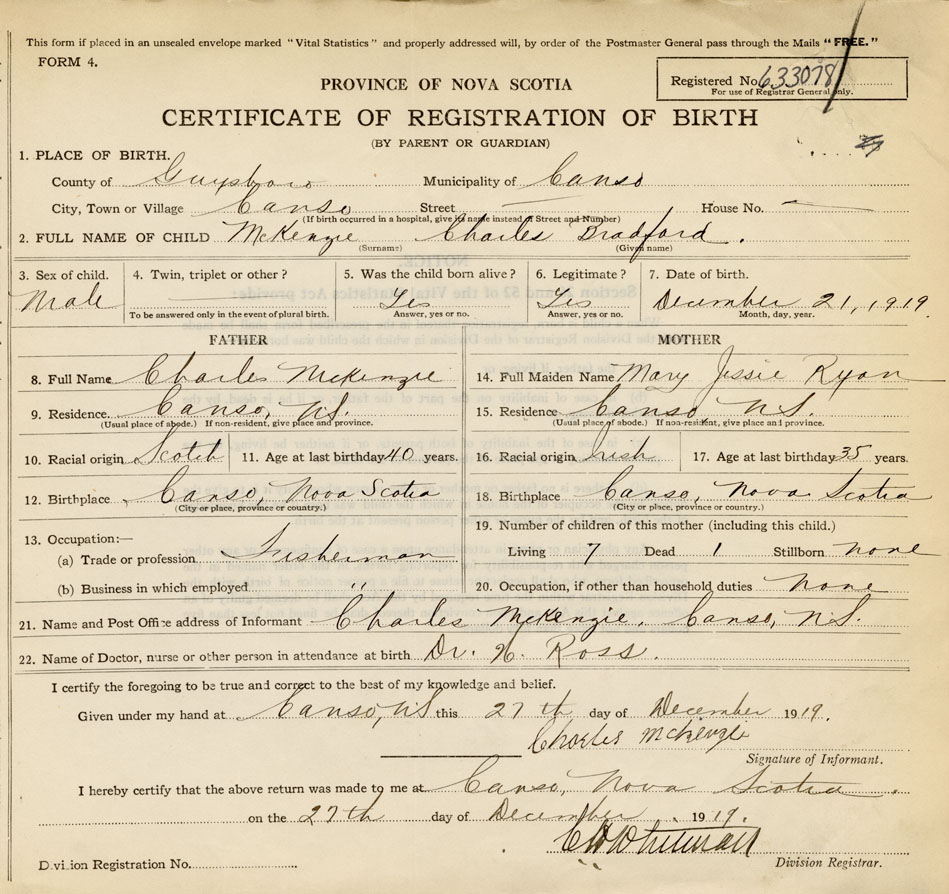 This form if placed in an unsealed envelope marked "Vital Statistics" and properly addressed will, by order of the Postmaster General pass through the Mails "FREE."
FORM 4.
Registered No. 633078
For use of Registrar General only.
PROVINCE OF NOVA SCOTIA
CERTIFICATE OF REGISTRATION OF BIRTH
(BY PARENT OR GUARDIAN)
1. PLACE OF BIRTH.
County of Guysboro Municipality of Canso
City, Town or Village Canso Street House No.
(If birth occurred in a hospital, give its name instead of Street and Number)
2. FULL NAME OF CHILD McKenzie Charles Bradford.
(Surname) (Given name)
3. Sex of child. 4. Twin, triplet or other? 5. Was the child born alive? 6. Legitimate? 7. Date of birth.
Male Yes Yes December 21, 1919.
To be answered only in the event of plural birth. Answer, yes or no. Answer, yes or no. Month, day, year.
FATHER MOTHER
8. Full Name Charles McKenzie 14. Full Maiden Name Mary Jessie Ryan
9. Residence. Canso, N.S. 15. Residence Canso N.S.
(Usual place of abode.) If non-resident, give place and province. (Usual place of abode.) If non-resident, give place and province.
10. Racial origin Scotch 11. Age at last birthday 40 years. 16. Racial origin Irish 17. Age at last birthday 35 years.
12. Birthplace Canso, Nova Scotia 18. Birthplace Canso, Nova Scotia
(City or place, province or country.) (City or place, province or country.)
13. Occupation:— 19. Number of children of this mother (including this child.)
(a) Trade or profession Fisherman Living 7 Dead 1 Stillborn none
(b) Business in which employed " 20. Occupation, if other than household duties None
21. Name and Post Office address of Informant Charles McKenzie, Canso, N.S.
22. Name of Doctor, nurse or other person in attendance at birth Dr. H. Ross.
I certify the foregoing to be true and correct to the best of my knowledge and belief.
Given under my hand at Canso, N.S this 27th day of December 1919.
Charles McKenzie
Signature of Informant.
I hereby certify that the above return was made to me at Canso, Nova Scotia.
on the 27th day of December 1919.
Division Registration No. Division Registrar.